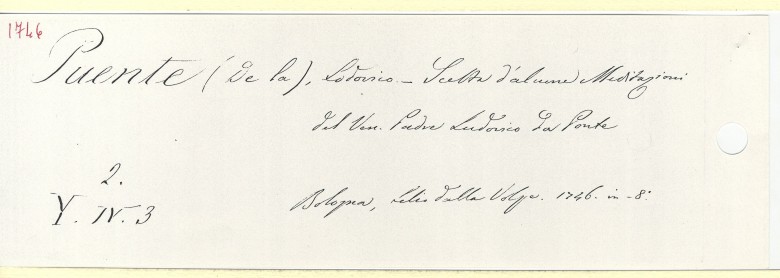 1746
Puente (De la), Lodovico - Scelta d'alcune Meditazioni
del Ven. Padre Ludovico da Ponte
2.
Y. IV. 3
Bologna, Lelio dalla Volpe. 1746. in-8°.